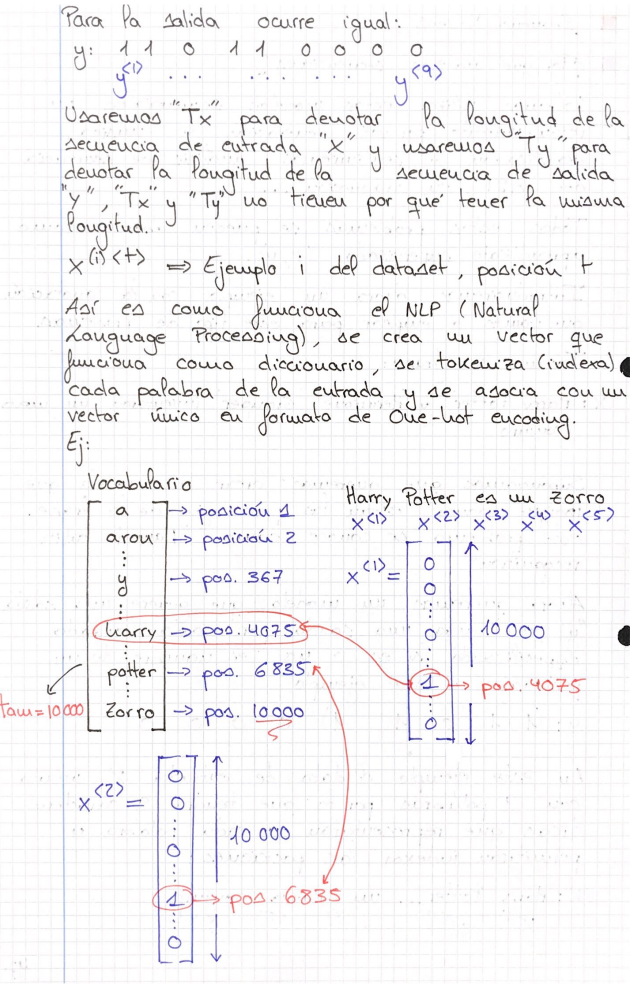 Para la salida ocurre igual:
y: 1 1 0 1 1 0 0 0 0
y<1> ... ... ... y<9>
Usaremos "Tx" para denotar la longitud de la
secuencia de entrada "x" y usaremos "Ty" para
denotar la longitud de la secuencia de salida
"y", "Tx" y "Ty" no tienen por qué tener la misma
longitud.
x(i)<t> ⇒ Ejemplo i del dataset, posición t
Así es como funciona el NLP (Natural
Language Processing), se crea un vector que
funciona como diccionario, se tokeniza (indexa)
cada palabra de la entrada y se asocia con un
vector único en formato de One-hot encoding.
Ej:
Vocabulario
a → posición 1
arou → posición 2
⋮
y → pos. 367
⋮
harry → pos. 4075
⋮
potter → pos. 6835
⋮
zorro → pos. 10000
tam=10000
Harry Potter es un zorro
x<1> x<2> x<3> x<4> x<5>
x<1> =
0
0
⋮
0
⋮
1 → pos. 4075
⋮
0
10000
x<2> =
0
0
⋮
0
⋮
1 → pos. 6835
⋮
0
10000